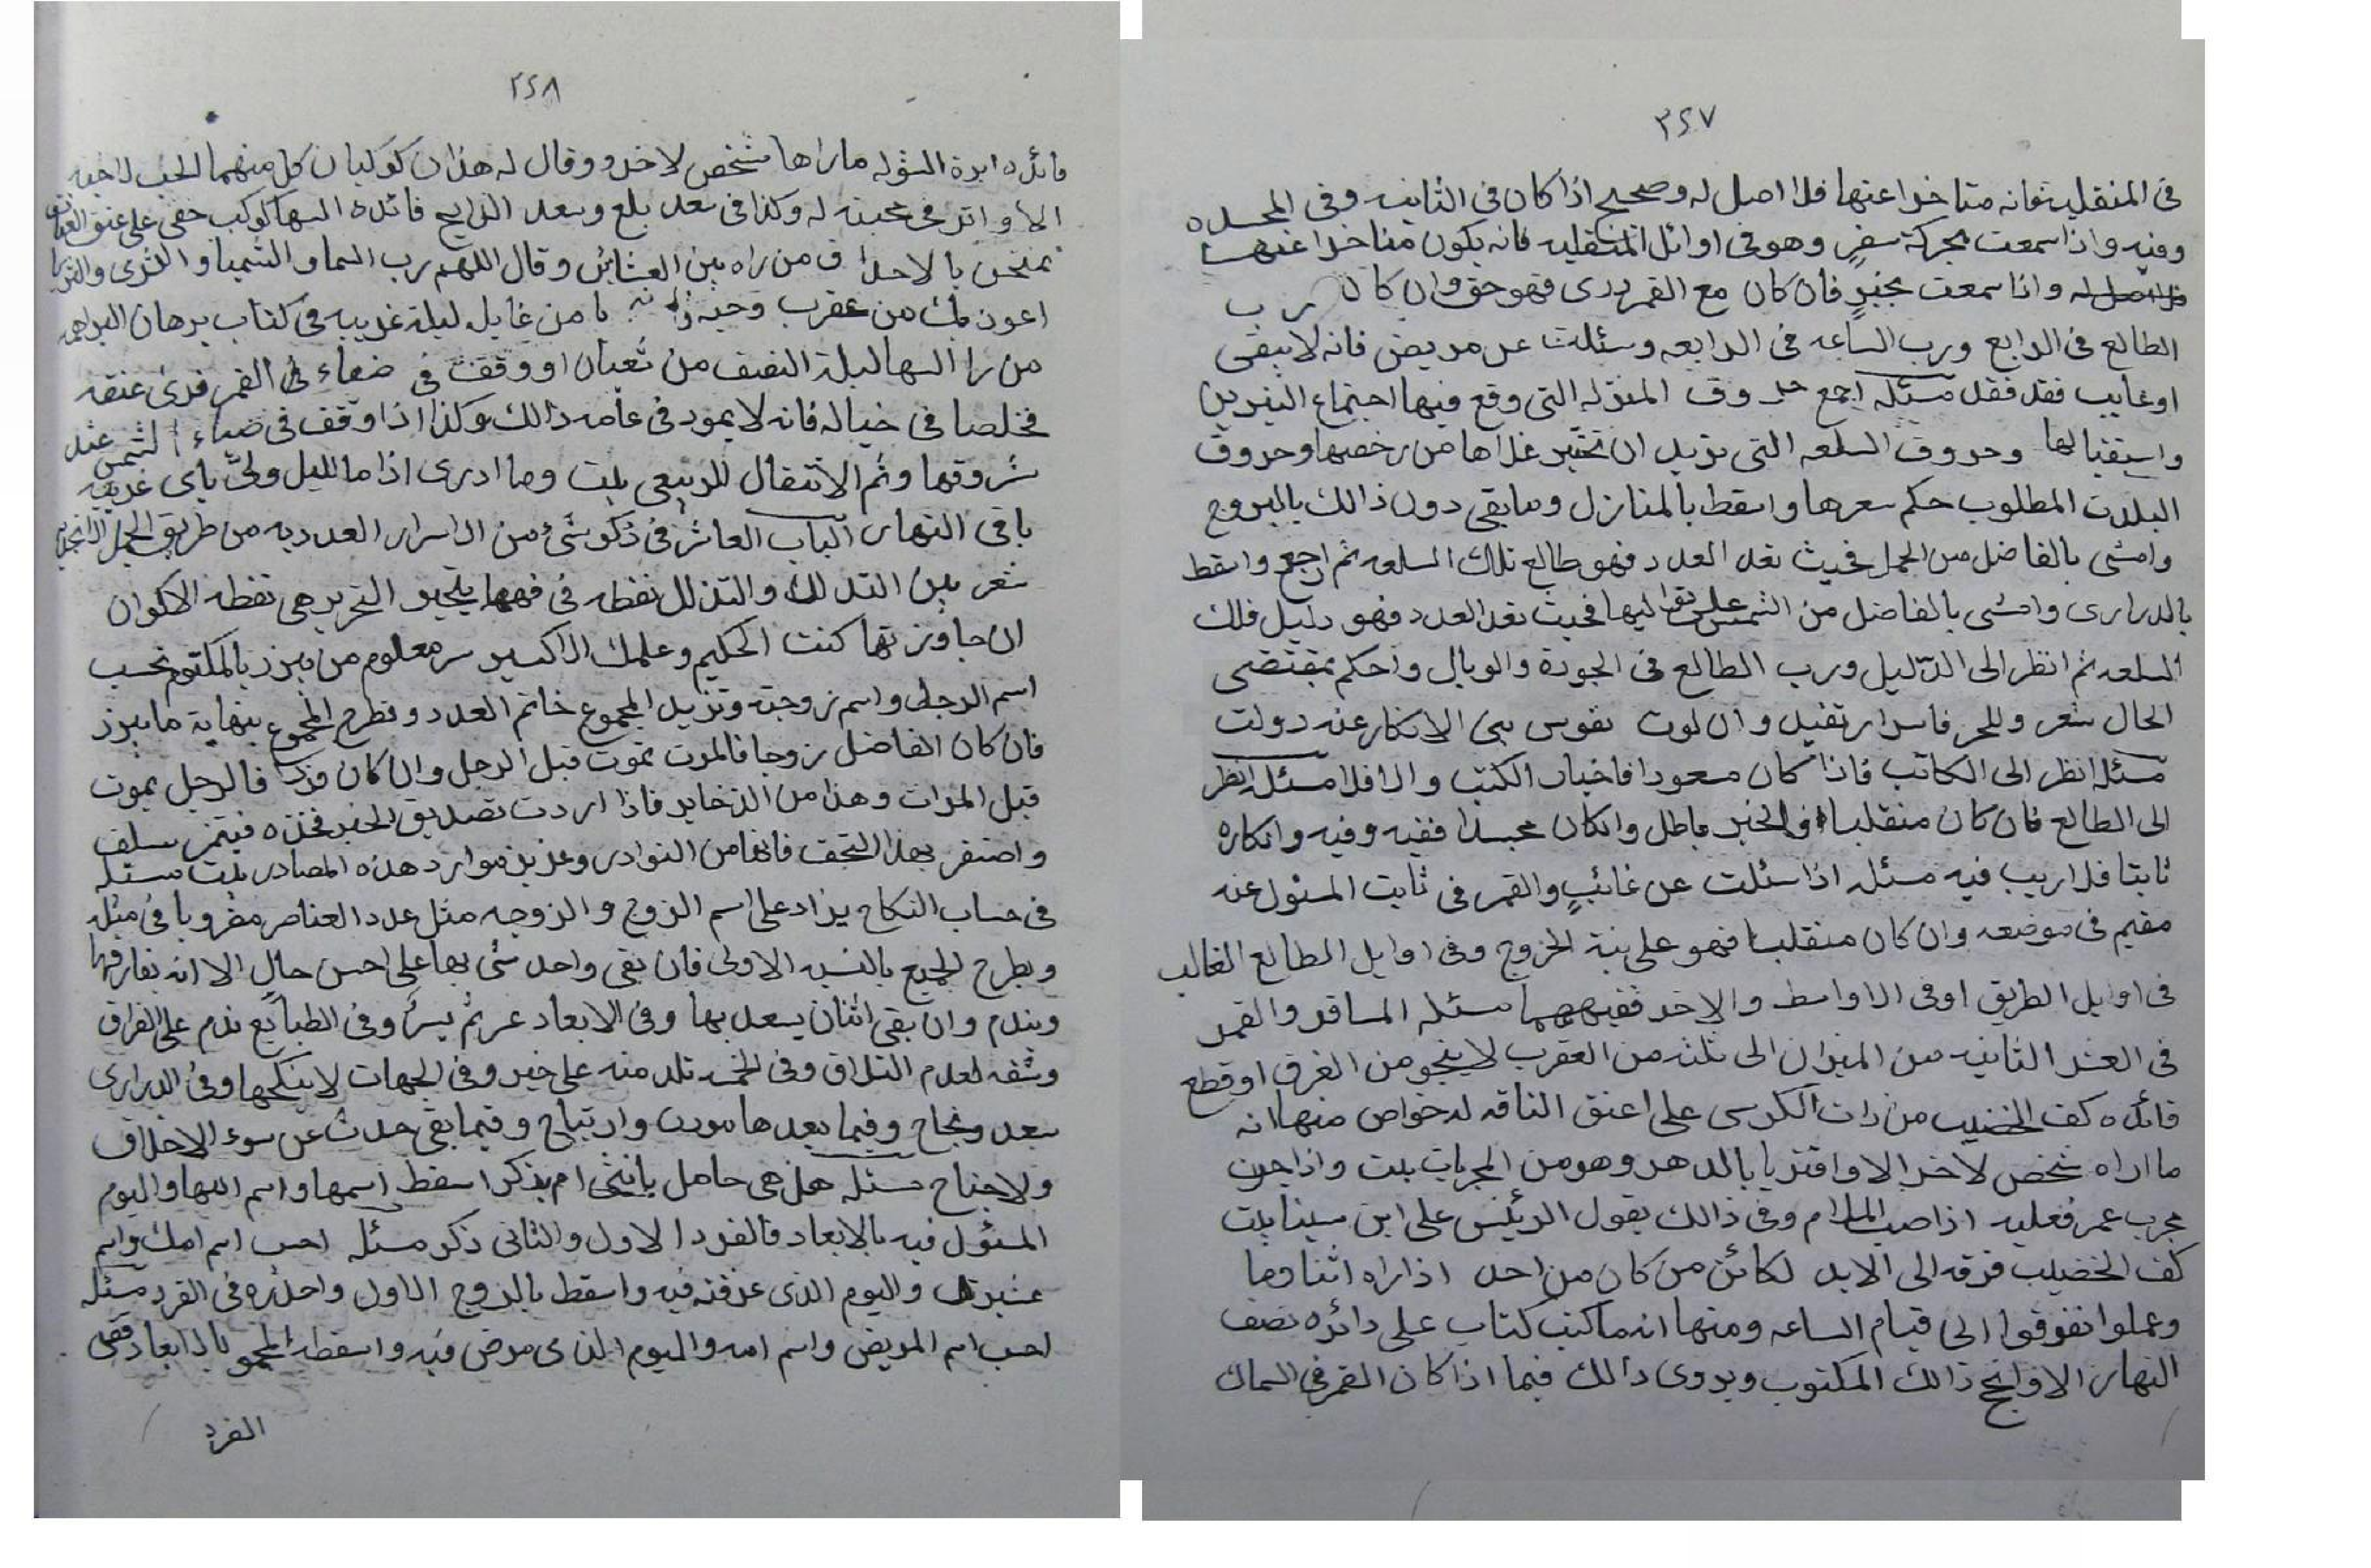 ٣٤٧
فى المنقلبه فانه متاخرا عنها فلا اصل له وصحيح اذا كان فى الثانيه وفى المجسده
وفيه واذا سمعت بحركة سفرٍ وهو فى اوائل المنقلبه فانه يكون متاخرا عنها
فلا اصل له واذا سمعت بخبرٍ فان كان مع القمر درى فهو حق وان كان رب
الطالع فى الرابع ورب الساعه فى الرابعه وسئلت عن مريض فانه لا يبقى
او غايب فقد فقد مسئله اجمع حروف المنزله التى وقع فيها اجتماع النيرين
واستقبالها وحروف السلعه التى تريد ان تختبر غلاها من رخصها وحروف
البلدت المطلوب حكم سعرها واسقط بالمنازل ومابقى دون ذالك بالبروج
وامشى بالفاضل من الحمل فحيث نفد العدد فهو طالع تلك السلعه ثم ارجع واسقط
بالدرارى وامشى بالفاضل من الشمس على اليها فحيث نفد العدد فهو دليل فلك
السلعه ثم انظر الى الدّليل ورب الطالع فى الجودة والوبال واحكم بمقتضى
الحال شعر وللحر فاسرار تفيد وان لوت نفوس بنى الانكار عنه دولت
مسئله انظر الى الكاتب فاذا كان مسعودا فاخبار الكتب والا فلا مسئله انظر
الى الطالع فان كان منقلبا فالخبر باطل وانكان مجسدا ففيه وفيه وانكاره
ثابتا فلا اريب فيه مسئله اذا سئلت عن غائبٍ والقمر فى ثابت المسئول عنه
مقيم فى موضعه وان كان منقلبا فهو على نية الخروج وفى اوايل الطالع الغالب
فى اوايل الطريق اوفى الاواسط والاخر ففيهما مسئله المسافر والقمر
فى العشر الثانيه من الميزان الى ثلثه من العقرب لا ينجو من الغرق او قطع
فائده كف الخضيب من ذات الكرسى على اعنق الناقه له خواص منها انه
ما اراه شخص لاخر الا وافترقا بالدهر وهو من المجربات بيت واذا حرن
مجرب عمر فعليه اذا صب المدام وفى ذالك يقول الرئيس على ابن سينا بيت
كف الخضيب فرقه الى الابد لكائن من كان من احد اذاراه اثنا وما
وعملوا تفرقوا الى قيام الساعه ومنها انه ما كتب كتاب على دائره نصف
النهار الا ونجح ذالك المكتوب ويروى ذالك فيما اذا كان القمر فى السماك
٣٤٨
فائده ابرة الشوله ماراها شخص لاخر وقال له هذان كوكبان كل منهما الحب لاخيه
الا واثر فى محبته له وكذا فى سعد بلع وسعد الذابح فائده السها كوكب خفى على عنق العناق
يمتحن با لاحدا ف من راه بين العشائين وقال اللهم رب السما والسميا والثرى والثريا
اعوذ بك من عقرب وحيه يا من غايل ليلة غريبه فى كتاب برهان البراهمه
من را السها ليلة النصف من شعبان او وقف فى ضياء فى القمر فرئ عنقه
مخلصا فى خياله فانه لا يموت فى عامه ذالك وكذا اذا وقف فى ضياء الشمس عند
شروقها وثم الانتقال للربيعى بيت وما ادرى اذا ما الليل ولىّ باى غريبه
باقى النهار الباب العاشر فى ذكر شئ من الاسرار العدديه من طريق الجمل الابجديه
شعر بين التدلل والتذلل نقطه فى فهمها يتحير النحرير هى نقطه الاكوان
ان جاوزتها كنت الحكيم وعلمك الاكسير سر معلوم من يبرز بالمكتوم تحسب
اسم الرجل واسم زوجته وتزيد المجموع خاتم العدد وتطرح المجموع بنهاية مايبرز
فان كان الفاضل زوجا فالمرت تموت قبل الرجل وان كان فردا فالرجل يموت
قبل المرات وهذا من الذخاير فاذا اردت تصديق الخبر فخذه فيتمز سلف
واضفر بهذا التحف فانها من النوادر وعذيذ موارد هذه المصادر بيت مسئله
فى حساب النكاح يزاد على اسم الزوج والزوجه مثل عدد العناصر مضروبا فى مثله
ويطرح الجميع بالنسبه الاولى فان بقى واحد شى بها على احسن حالٍ الا انه يفارقها
ويندم وان بقى اثنان يسعد بها وفى الابعاد عر ثم يسرٌ وفى الطبايع ندم على الفراق
وشقه لعدم التلاق وفى الخمسه تلد منه على خير وفى الجهات لا ينكحها وفى الدرارى
سعد ونجاح وفيما بعدها مورت وارتياح وفيما بقى حدث عن سوء الاخلاق
ولا جناح مسئله هل هى حامل بانثى ام بذكر اسقط اسمها واسم امها واليوم
المسئول فيه بالابعاد فالفرد الاول والثانى ذكر مسئله احسب اسم امك واسم
عشيرتك واليوم الذى عرفته فيه واسقط بالزوج الاول واحذره فى الفرد مسئله
احسب اسم المريض واسم امه واليوم الذى مرض فيه واسقطه المجموع بالابعاد ففى
الفرد